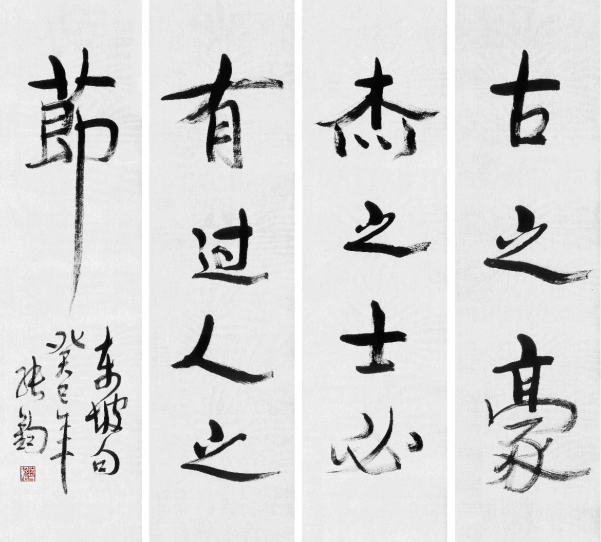 古之豪
杰之士必
有过人之
節
东坡句
癸巳年
张钧